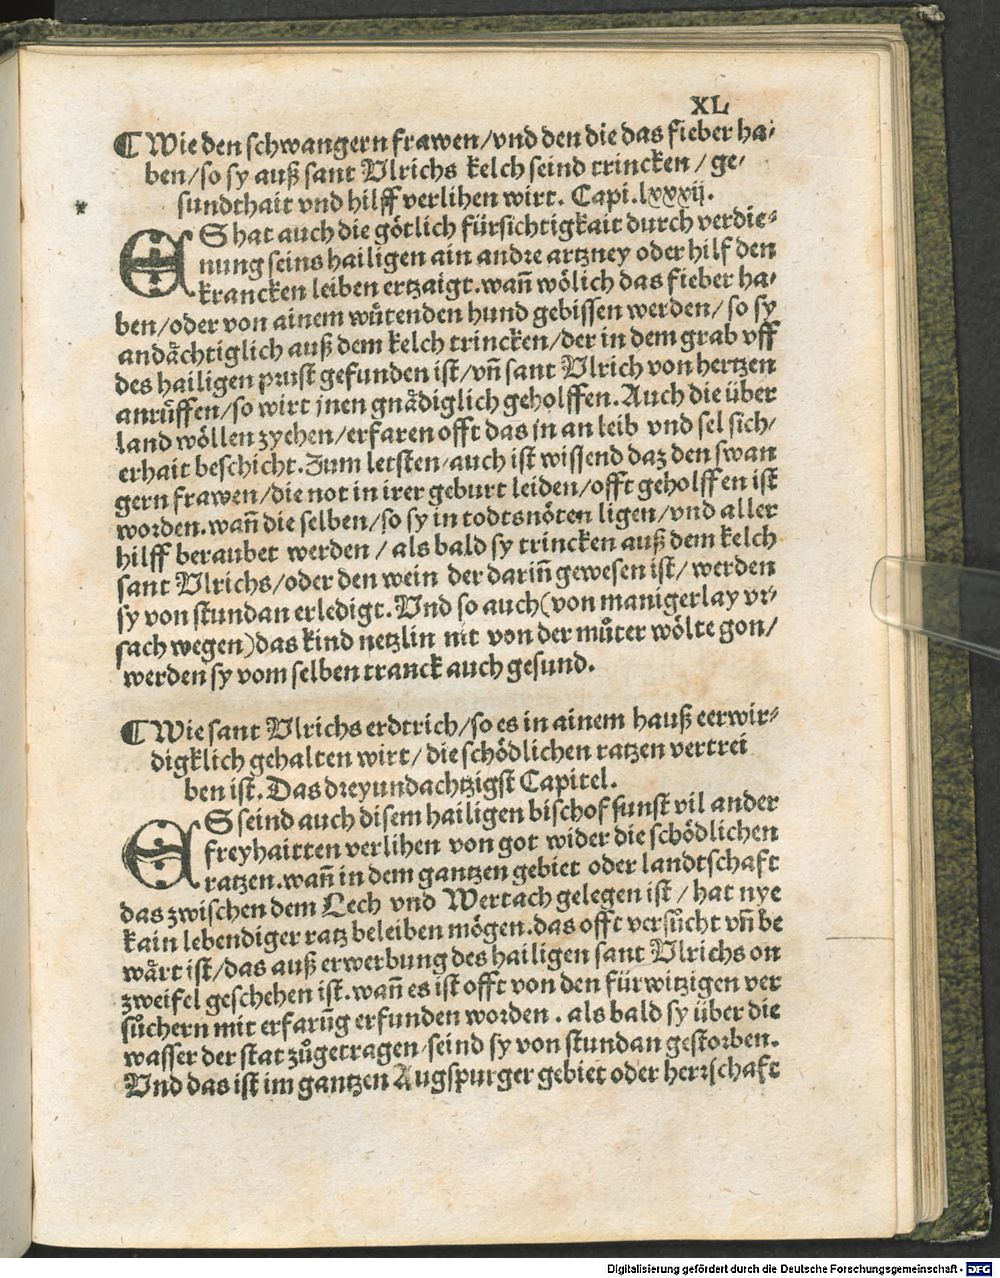 XL
¶ Wie den schwangern frawen/vnd den die das fieber ha⸗
ben/so sy auß sant Vlrichs kelch seind trincken/ ge⸗
sundthait vnd hilff verlihen wirt. Capi.lxxxij.
ES hat auch die götlich fürsichtigkait durch verdie⸗
nung seins hailigen ain andre artzney oder hilf den
krancken leiben ertzaigt.wañ wölich das fieber ha⸗
ben/oder von ainem wuͤtenden hund gebissen werden/ so sy
andaͤchtiglich auß dem kelch trincken/der in dem grab vff
des hailigen prust gefunden ist/vñ sant Vlrich von hertzen
anruͤffen/so wirt jnen gnaͤdiglich geholffen. Auch die über
land wöllen zyehen/erfaren offt das in an leib vnd sel sich⸗
erhait beschicht. Zum letsten/auch ist wissend daz den swan
gern frawen/die not in irer geburt leiden/offt geholffen ist
worden.wañ die selben/so sy in todtsnöten ligen/vnd aller
hilff beraubet werden/ als bald sy trincken auß dem kelch
sant Vlrichs/oder den wein der dariñ gewesen ist/ werden
sy von stundan erledigt. Vnd so auch(von manigerlay vr⸗
sach wegen)das kind netzlin nit von der muͦter wölte gon/
werden sy vom selben tranck auch gesund.
¶ Wie sant Vlrichs erdtrich/so es in ainem hauß eerwir⸗
digklich gehalten wirt/ die schödlichen ratzen vertrei
ben ist. Das dreyundachtzigst Capitel.
ES seind auch disem hailigen bischof sunst vil ander
freyhaitten verlihen von got wider die schödlichen
ratzen.wañ in dem gantzen gebiet oder landtschaft
das zwischen dem Lech vnd Wertach gelegen ist/ hat nye
kain lebendiger ratz beleiben mögen.das offt versuͦcht vñ be
waͤrt ist/das auß erwerbung des hailigen sant Vlrichs on
zweifel geschehen ist.wañ es ist offt von den fürwitzigen ver
suͦchern mit erfarūg erfunden worden. als bald sy über die
wasser der stat zuͦgetragen/seind sy von stundan gestorben.
Vnd das ist im gantzen Augspurger gebiet oder herrschaft
Digitalisierung gefördert durch die Deutsche Forschungsgemeinschaft - DFG